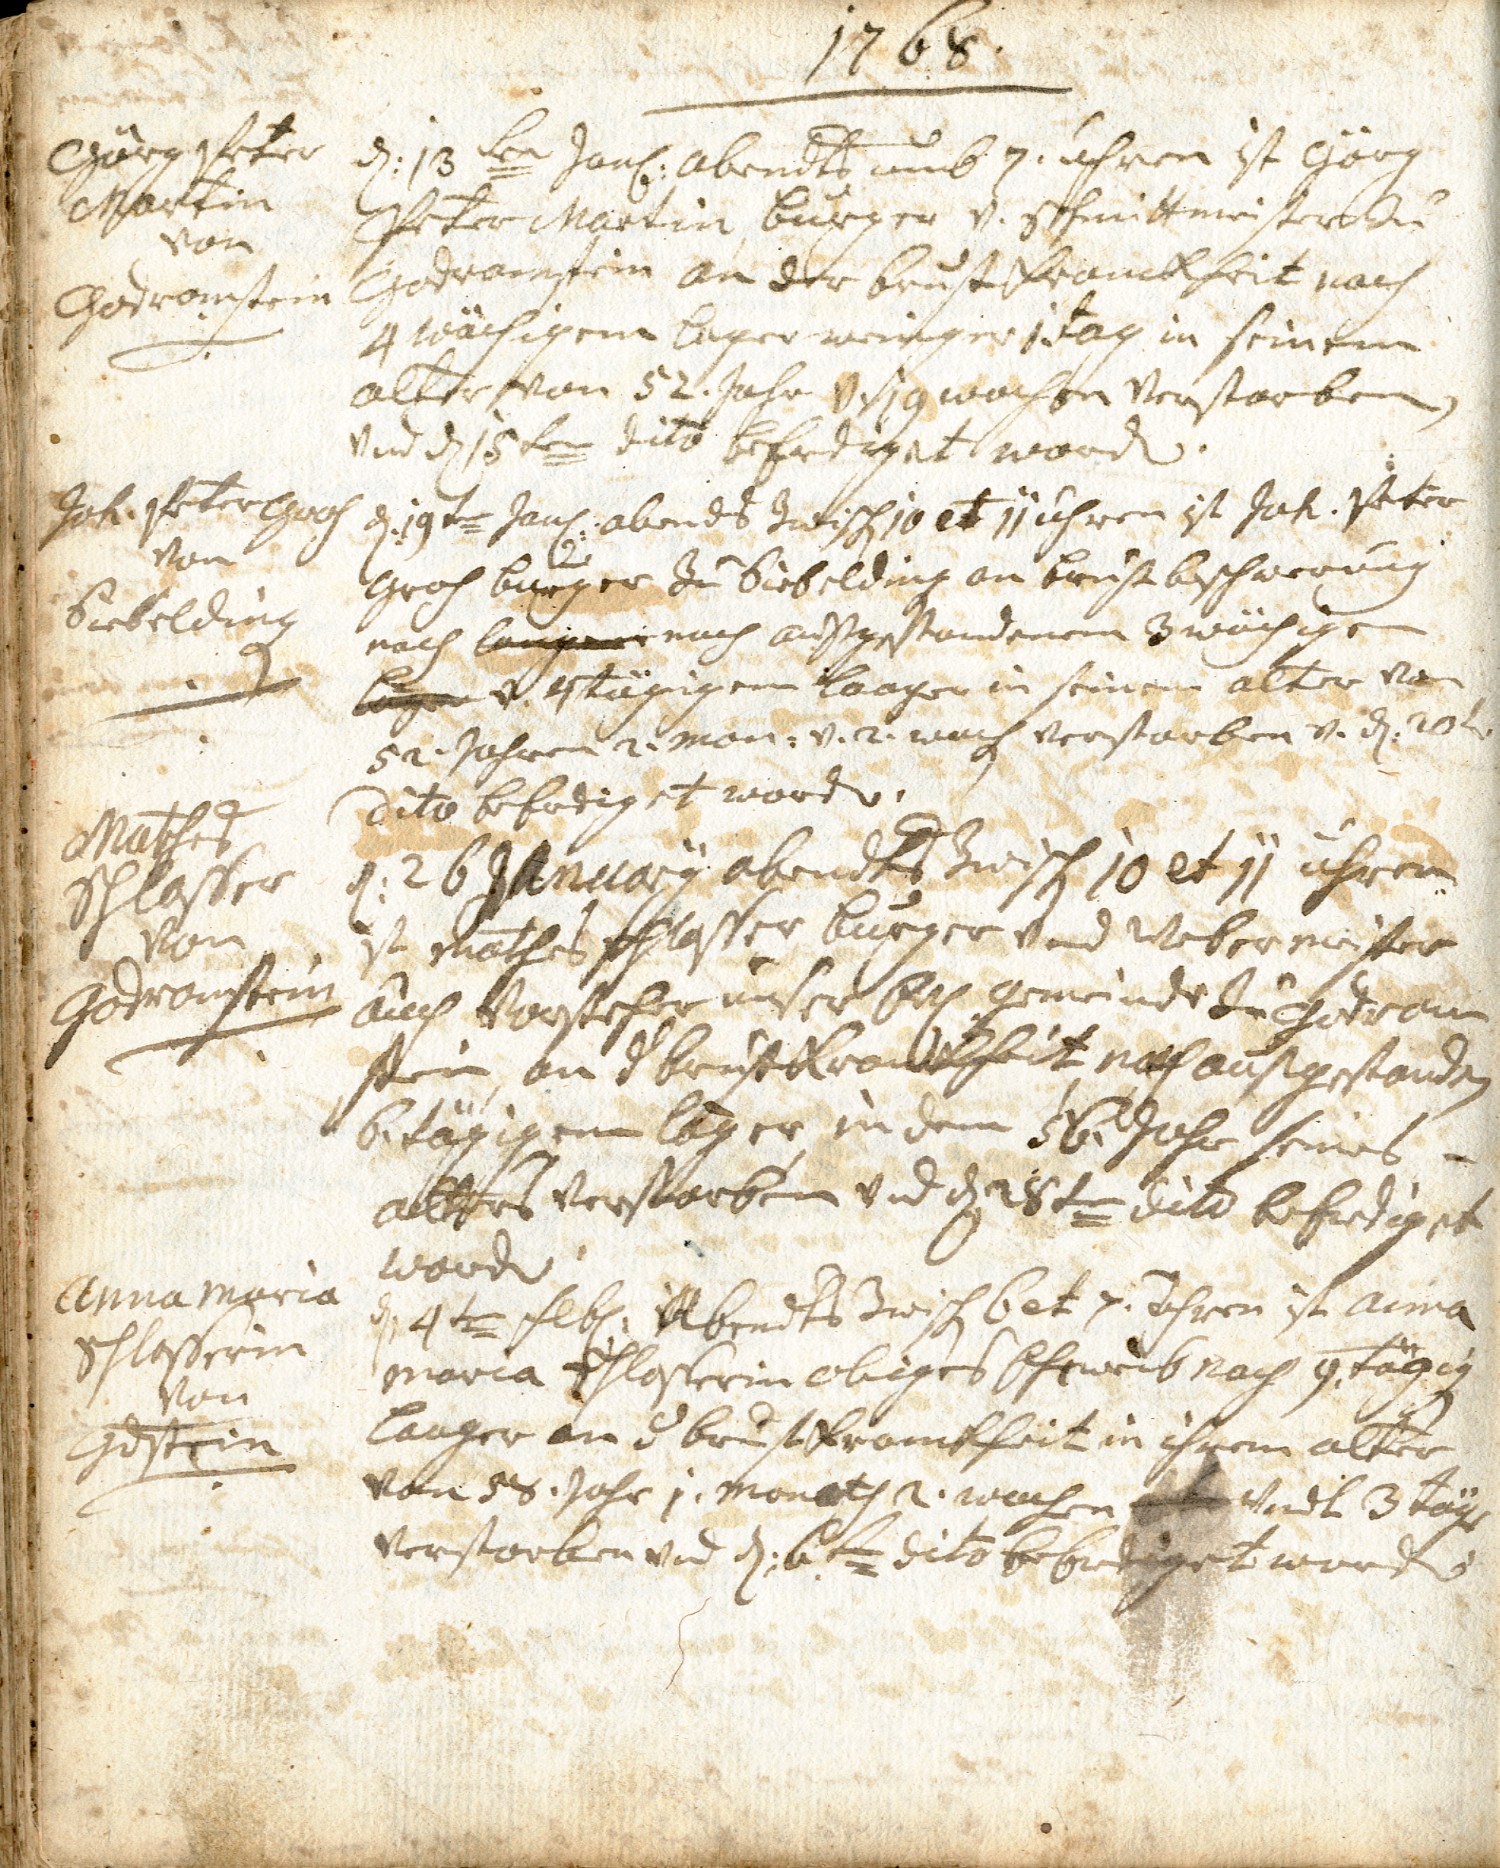 1768.
Görg Peter
Martin
von
Godramstein
d: 13ten Jan: abendts umb 7. uhren ist Görg
Peter Martin burger v. Schmittmeister zu
Godramstein an der brust kranckheit nach
4 wöchigem lager weniger 1. tag in seinem
alter von 52. Jahr v. 19 wochen verstorben,
und d 15ten dito beerdiget word.
Joh. Peter Groh
von
Siebelding
d. 19ten Jan: abends zwisch 10 et 11 uhren ist Joh. Peter
Groh burger zu Siebelding an brust beschwerung
nach nach ausgestandenem 3 wöchigen
v. 4 tägigem laager in seinem alter von
52. Jahren 2. mon: v. 2. woch verstorben v. d: 20t
dito beerdiget word.
Mathes
Schlosser
von
Godramstein
d: 26 January abendts zwisch 10 et 11 uhren
ist Mathes Schlosser burger und Webermeister
auch Vorsteher unser gemeinde zu Godram
stein, an d brust kranckheit nach ausgestanden
6. tägigem lager, in dem 56. Jahr seines -
alters verstorben und d 28ten dito beerdiget
word.
Anna Maria
Schlosserin
von
Gdstein
d. 4ten Feb: Abendts zwisch 6 et 7. uhren ist Anna
Maria Schlosserin obiges Eheweib nach 9. tägig
laager an d brust kranckheit in ihrem alter
von 58. Jahr 1. monath 2. wochen undt 3 täge
verstorben und d: 6ten dito beerdiget word.